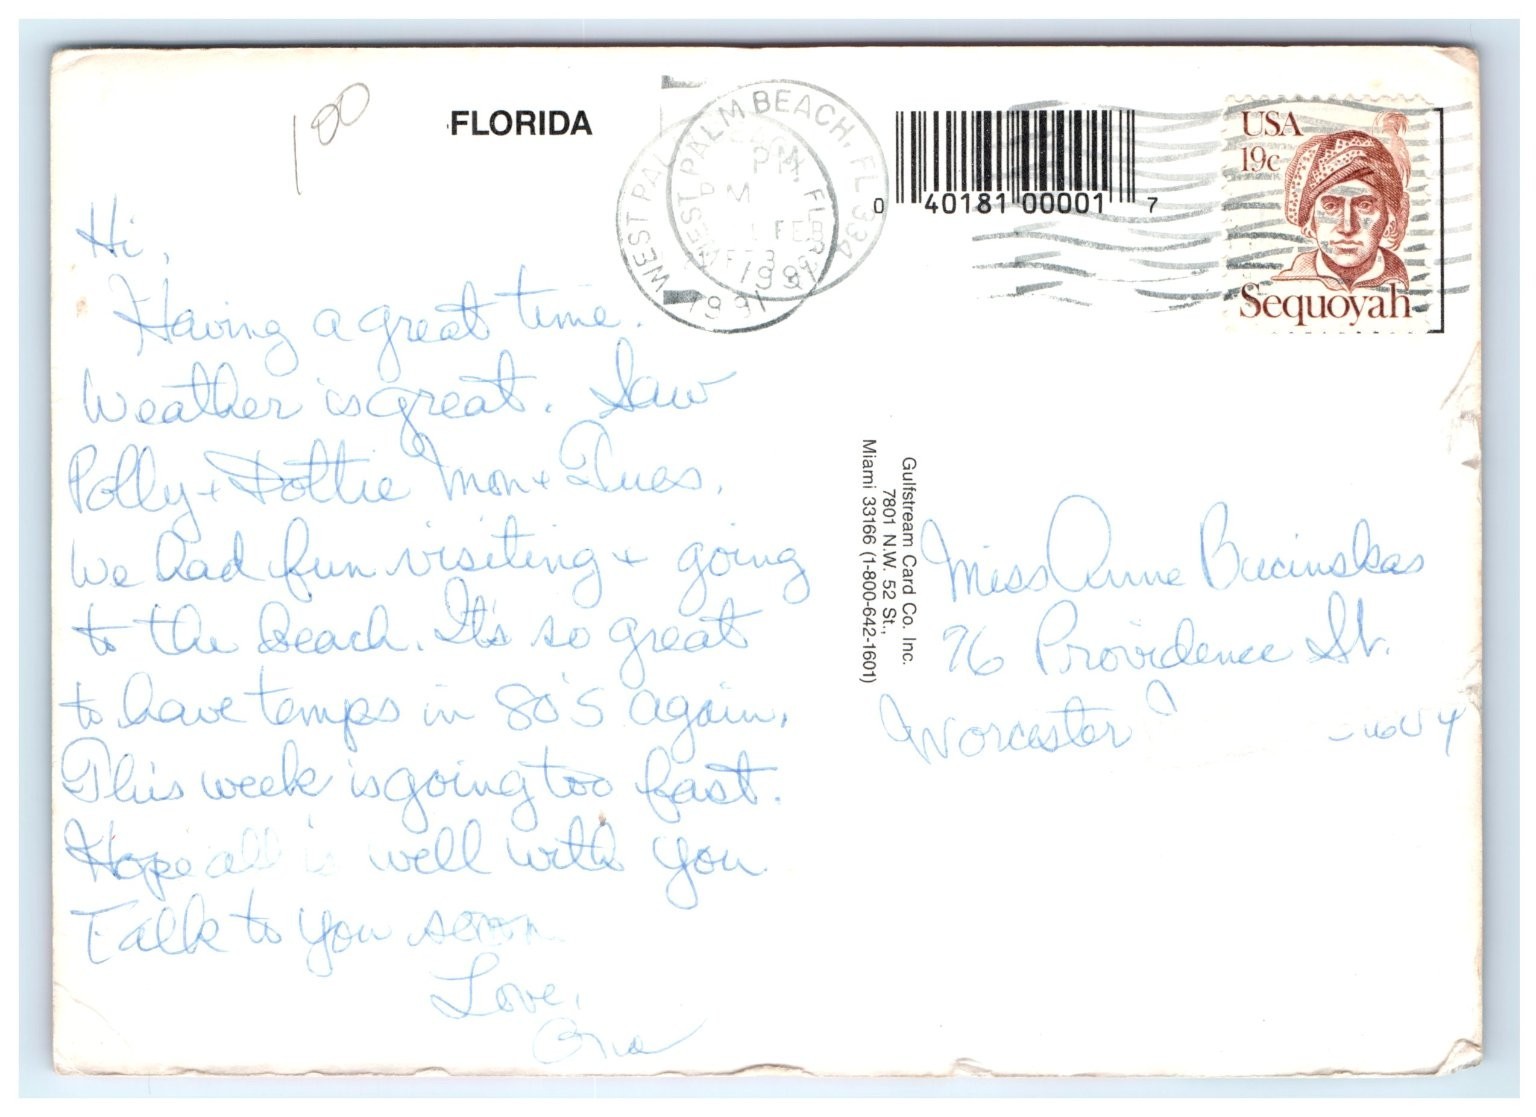 100
FLORIDA
WEST PALM BEACH, FL 334
PM
1 FEB
1991
WEST PALM
1991
0 40181 00001 7
USA
19c
Sequoyah
Hi,
Having a great time.
Weather is great. Saw
Polly + Dottie Mon + Tues.
We had fun visiting + going
to the beach. It's so great
to have temps in 80's again.
This week is going too fast.
Hope all is well with you
Talk to you soon
Love,
Gulfstream Card Co. Inc.
7801 N.W. 52 St.,
Miami 33166 (1-800-642-1601)
Miss Anne Bucinskas
76 Providence St.
Worcester